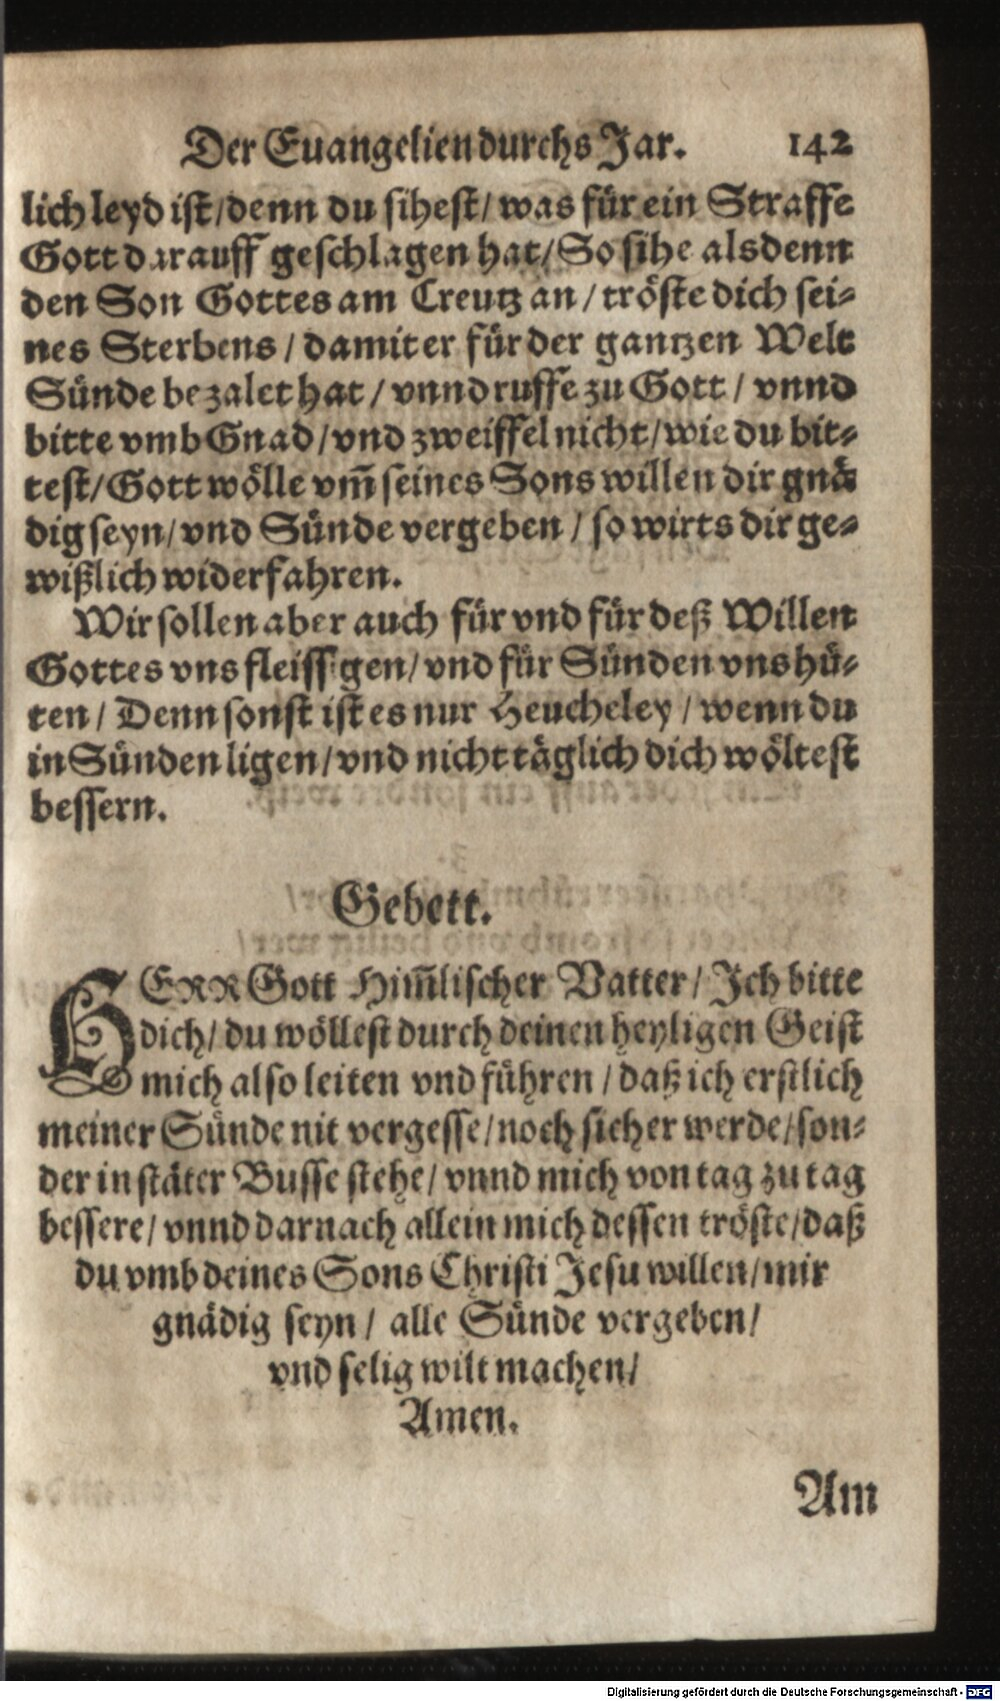 Der Euangelien durchs Jar. 142
lich leyd ist/denn du sihest/was für ein Straffe
Gott darauff geschlagen hat/So sihe alsdenn
den Son Gottes am Creutz an/tröste dich sei-
nes Sterbens/damit er für der gantzen Welt
Sünde bezalet hat/vnnd ruffe zu Gott/vnnd
bitte vmb Gnad/vnd zweiffel nicht/wie du bit-
test/Gott wölle vm̃ seines Sons willen dir gnä
dig seyn/vnd Sünde vergeben/so wirts dir ge-
wißlich widerfahren.
Wir sollen aber auch für vnd für deß Willen
Gottes vns fleissigen/vnd für Sünden vns hü-
ten/Denn sonst ist es nur Heucheley/wenn du
in Sünden ligen/vnd nicht täglich dich wöltest
bessern.
Gebett.
HERR Gott Him̃lischer Vatter/Ich bitte
dich/du wöllest durch deinen heyligen Geist
mich also leiten vnd führen/daß ich erstlich
meiner Sünde nit vergesse/noch sicher werde/son-
der in stäter Busse stehe/vnnd mich von tag zu tag
bessere/vnnd darnach allein mich dessen tröste/daß
du vmb deines Sons Christi Jesu willen/mir
gnädig seyn/alle Sünde vergeben/
vnd selig wilt machen/
Amen.
Am
Digitalisierung gefördert durch die Deutsche Forschungsgemeinschaft - DFG